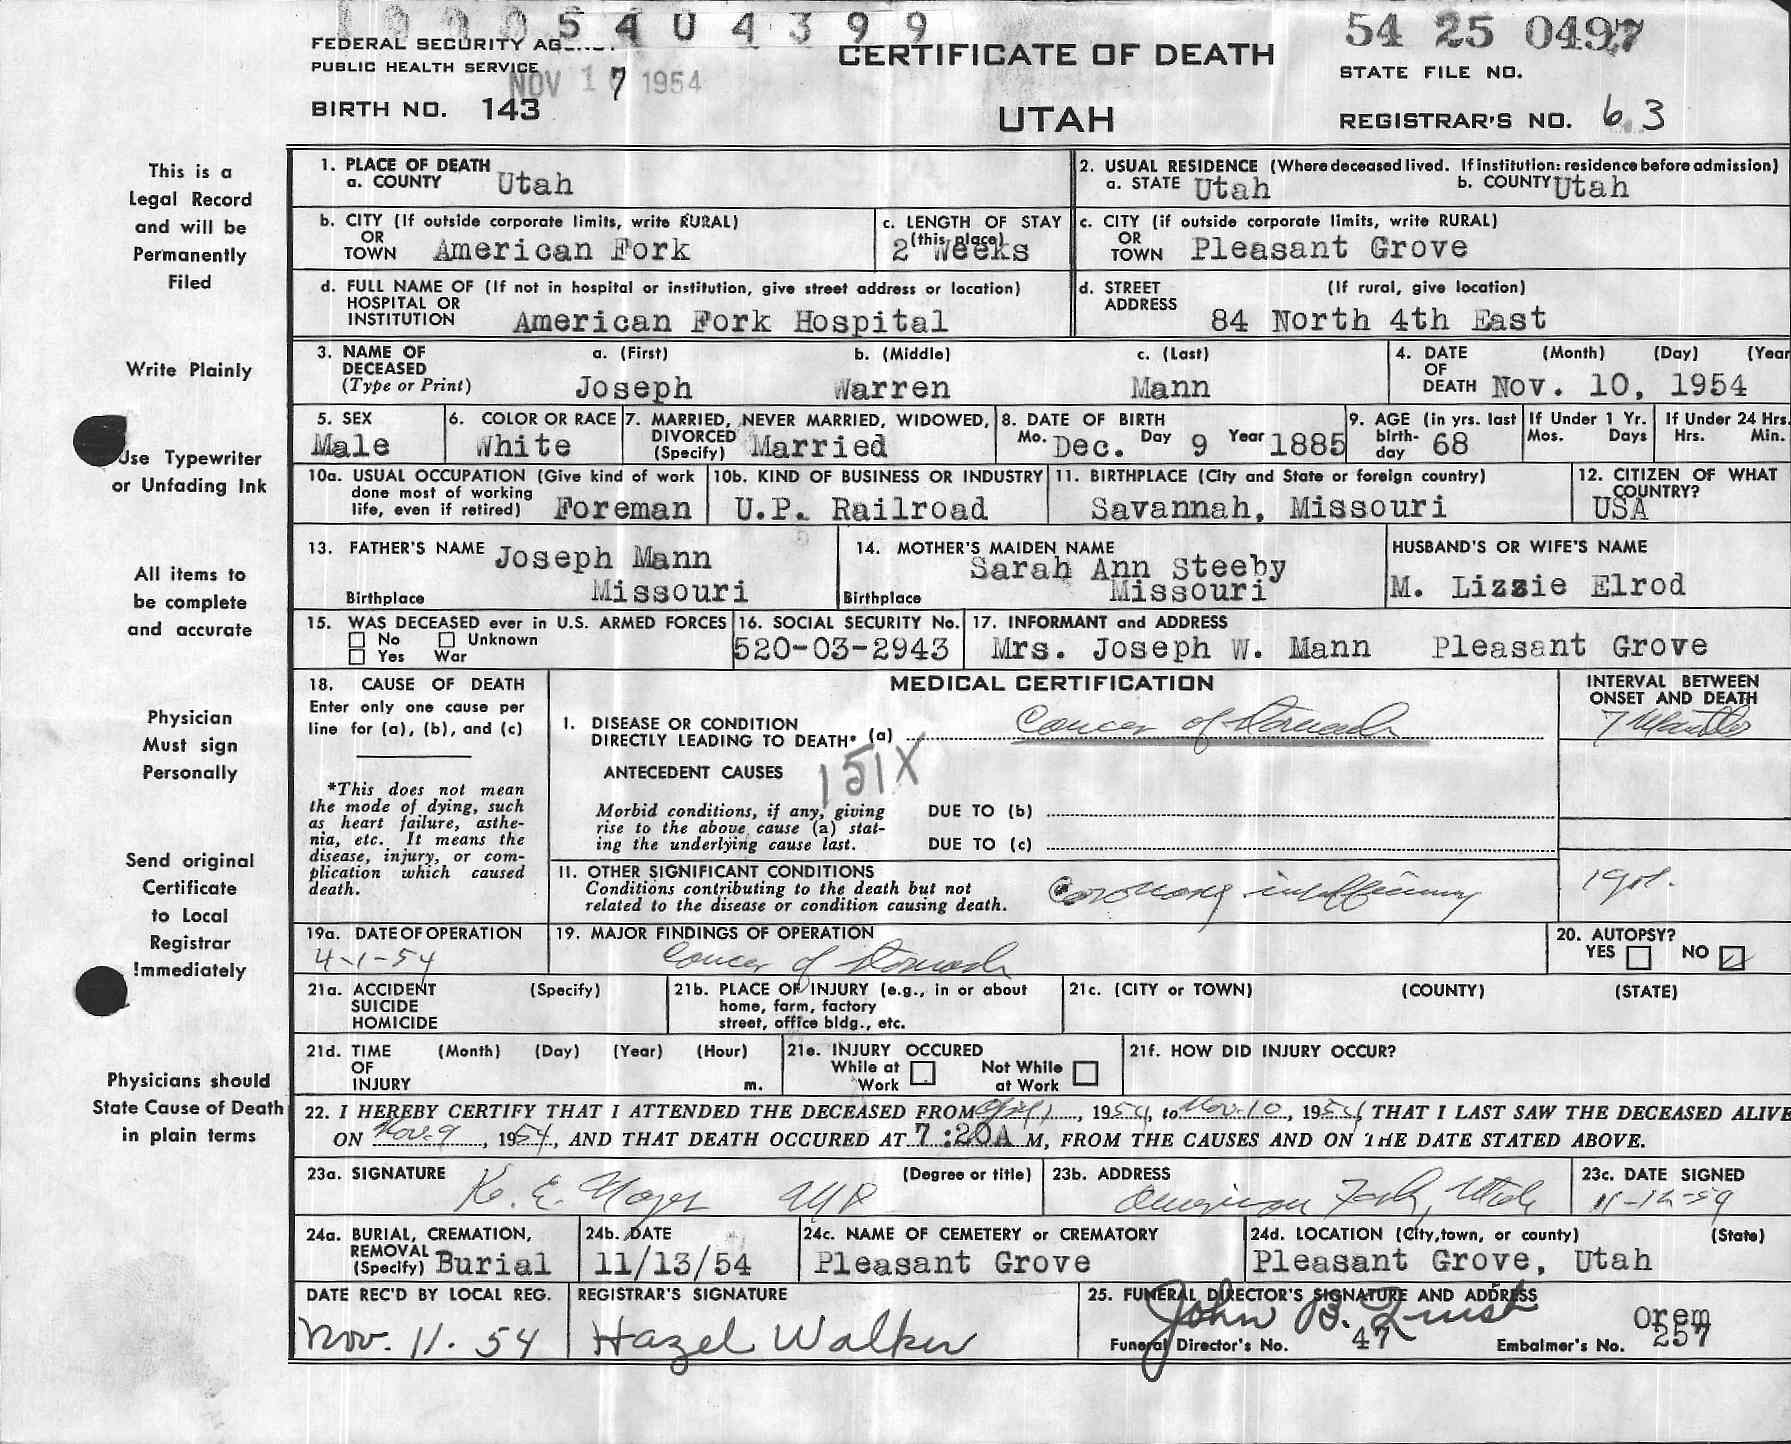 5 4 0 4 3 9 9
54 25 0497
FEDERAL SECURITY
PUBLIC HEALTH SERVICE
NOV 17 1954
CERTIFICATE OF DEATH
STATE FILE NO.
BIRTH NO. 143
UTAH
REGISTRAR'S NO. 63
This is a
Legal Record
and will be
Permanently
Filed
Write Plainly
Use Typewriter
or Unfading Ink
All items to
be complete
and accurate
Physician
Must sign
Personally
Send original
Certificate
to Local
Registrar
Immediately
Physicians should
State Cause of Death
in plain terms
1. PLACE OF DEATH
a. COUNTY Utah
2. USUAL RESIDENCE (Where deceased lived. If institution: residence before admission)
a. STATE Utah b. COUNTY Utah
b. CITY (If outside corporate limits, write RURAL)
OR
TOWN American Fork
c. LENGTH OF STAY
(this place)
2 Weeks
c. CITY (if outside corporate limits, write RURAL)
OR
TOWN Pleasant Grove
d. FULL NAME OF (If not in hospital or institution, give street address or location)
HOSPITAL OR
INSTITUTION American Fork Hospital
d. STREET (If rural, give location)
ADDRESS
84 North 4th East
3. NAME OF a. (First) b. (Middle) c. (Last)
DECEASED
(Type or Print) Joseph Warren Mann
4. DATE (Month) (Day) (Year
OF
DEATH Nov. 10, 1954
5. SEX
Male
6. COLOR OR RACE
White
7. MARRIED, NEVER MARRIED, WIDOWED,
DIVORCED
(Specify) Married
8. DATE OF BIRTH
Mo. Dec. Day 9 Year 1885
9. AGE (in yrs. last
birth-
day 68
If Under 1 Yr.
Mos. Days
If Under 24 Hrs.
Hrs. Min.
10a. USUAL OCCUPATION (Give kind of work
done most of working
life, even if retired) Foreman
10b. KIND OF BUSINESS OR INDUSTRY
U.P. Railroad
11. BIRTHPLACE (City and State or foreign country)
Savannah, Missouri
12. CITIZEN OF WHAT
COUNTRY?
USA
13. FATHER'S NAME Joseph Mann
Birthplace Missouri
14. MOTHER'S MAIDEN NAME
Sarah Ann Steeby
Birthplace Missouri
HUSBAND'S OR WIFE'S NAME
M. Lizzie Elrod
15. WAS DECEASED ever in U.S. ARMED FORCES
No Unknown
Yes War
16. SOCIAL SECURITY No.
520-03-2943
17. INFORMANT and ADDRESS
Mrs. Joseph W. Mann Pleasant Grove
18. CAUSE OF DEATH
Enter only one cause per
line for (a), (b), and (c)
*This does not mean
the mode of dying, such
as heart failure, asthe-
nia, etc. It means the
disease, injury, or com-
plication which caused
death.
MEDICAL CERTIFICATION
INTERVAL BETWEEN
ONSET AND DEATH
I. DISEASE OR CONDITION
DIRECTLY LEADING TO DEATH* (a) Cancer of Stomach
7 Months
ANTECEDENT CAUSES
151X
Morbid conditions, if any, giving
rise to the above cause (a) stat-
ing the underlying cause last.
DUE TO (b)
DUE TO (c)
II. OTHER SIGNIFICANT CONDITIONS
Conditions contributing to the death but not
related to the disease or condition causing death.
Coronary insufficiency
1 yr.
19a. DATE OF OPERATION
4-1-54
19. MAJOR FINDINGS OF OPERATION
Cancer of Stomach
20. AUTOPSY?
YES NO
21a. ACCIDENT (Specify)
SUICIDE
HOMICIDE
21b. PLACE OF INJURY (e.g., in or about
home, farm, factory
street, office bldg., etc.
21c. (CITY or TOWN) (COUNTY) (STATE)
21d. TIME (Month) (Day) (Year) (Hour)
OF
INJURY m.
21e. INJURY OCCURED
While at Not While
Work at Work
21f. HOW DID INJURY OCCUR?
22. I HEREBY CERTIFY THAT I ATTENDED THE DECEASED FROM , 1954, to Nov-10, 1954, THAT I LAST SAW THE DECEASED ALIVE
ON Nov. 9, 1954, AND THAT DEATH OCCURED AT 7:20A M, FROM THE CAUSES AND ON THE DATE STATED ABOVE.
23a. SIGNATURE (Degree or title)
K. E. MD
23b. ADDRESS
American Fork, Utah
23c. DATE SIGNED
24a. BURIAL, CREMATION,
REMOVAL
(Specify) Burial
24b. DATE
11/13/54
24c. NAME OF CEMETERY or CREMATORY
Pleasant Grove
24d. LOCATION (City, town, or county) (State)
Pleasant Grove, Utah
DATE REC'D BY LOCAL REG.
Nov. 11. 54
REGISTRAR'S SIGNATURE
Hazel Walker
25. FUNERAL DIRECTOR'S SIGNATURE AND ADDRESS
John B. Orem
Funeral Director's No. 47 Embalmer's No. 257